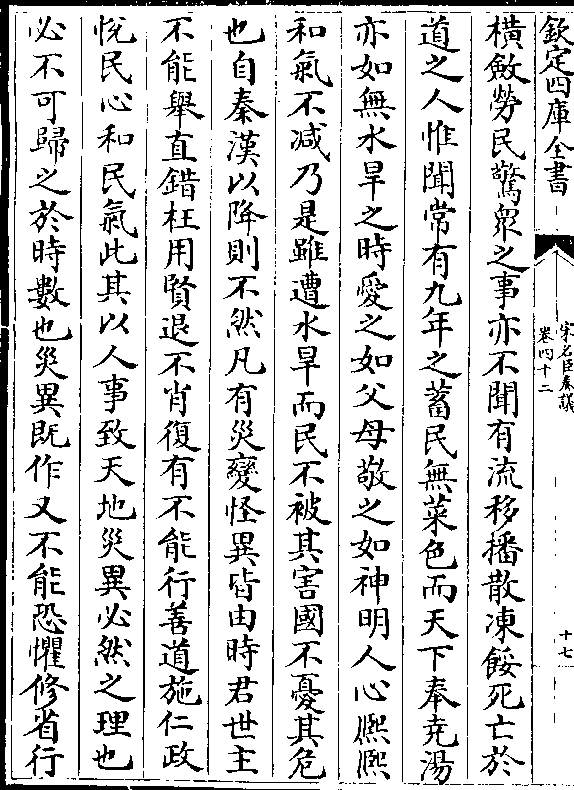 欽定四庫全書
宋名臣奏議
卷四十二
十七
橫斂勞民驚衆之事亦不聞有流移播散凍餒死亡於
道之人惟聞常有九年之蓄民無菜色而天下奉堯湯
亦如無水旱之時愛之如父母敬之如神明人心熈熈
和氣不減乃是雖遭水旱而民不被其害國不憂其危
也自秦漢以降則不然凡有災變怪異皆由時君世主
不能舉直錯枉用賢退不肖復有不能行善道施仁政
悅民心和民氣此其以人事致天地災異必然之理也
必不可歸之於時數也災異既作又不能恐懼修省行